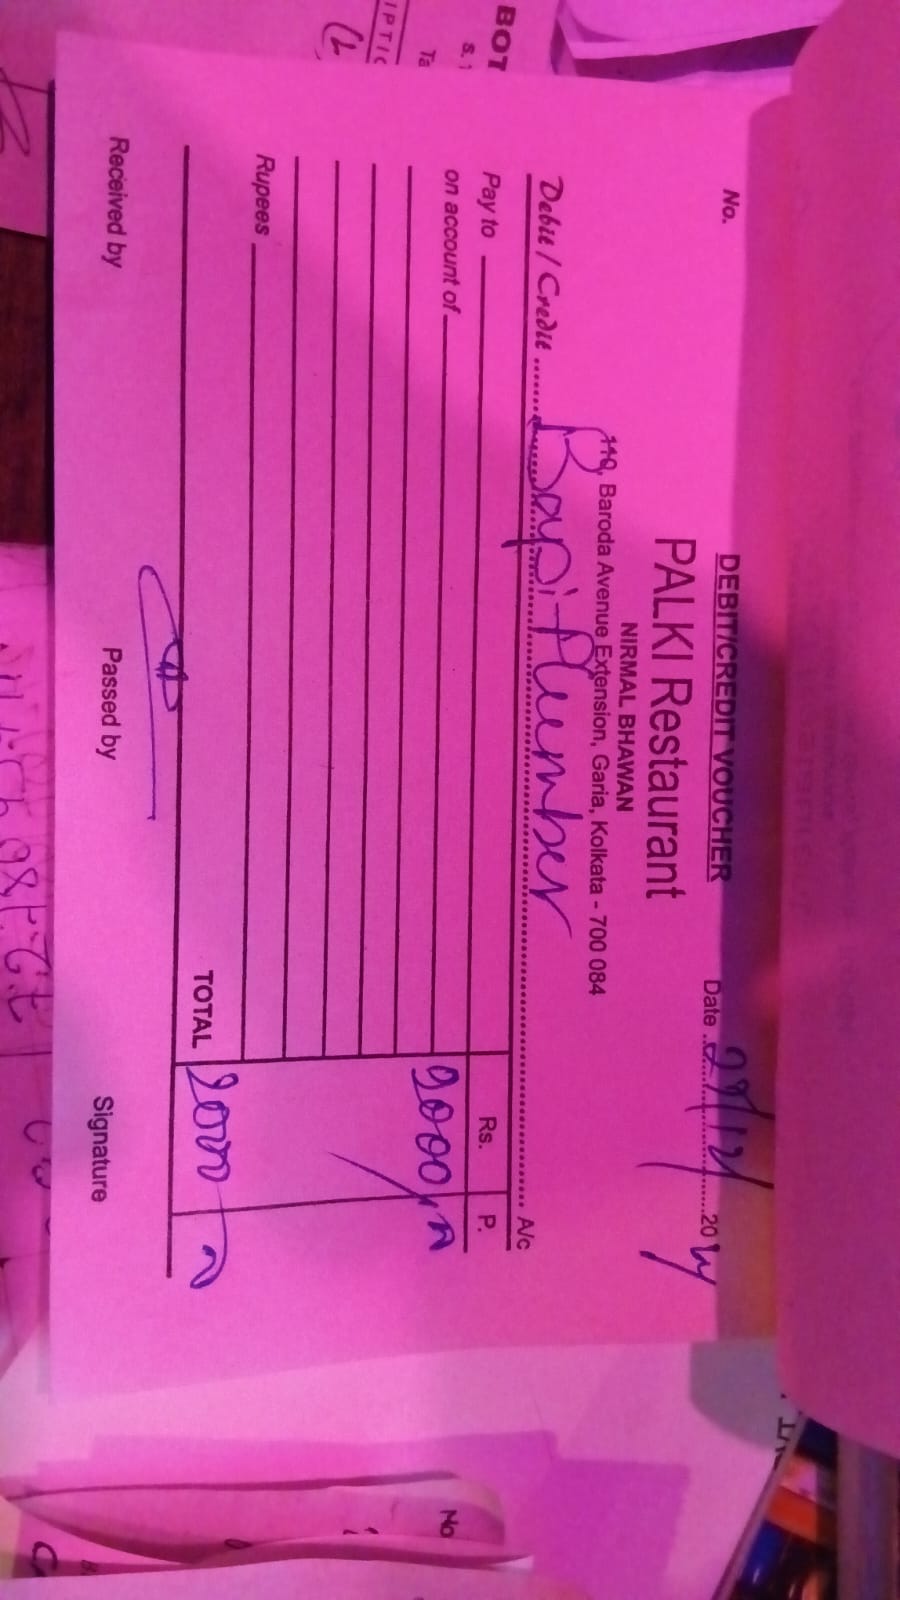 DEBIT/CREDIT VOUCHER
No.
Date 29/12/ 2024
PALKI Restaurant
NIRMAL BHAWAN
110, Baroda Avenue Extension, Garia, Kolkata - 700 084
Debit / Credit Bapi Plumber A/c
Pay to Rs. P.
on account of 2000/-
Rupees
TOTAL 2000
Received by Passed by Signature
BOT
S.
Ta
IPTIC
No